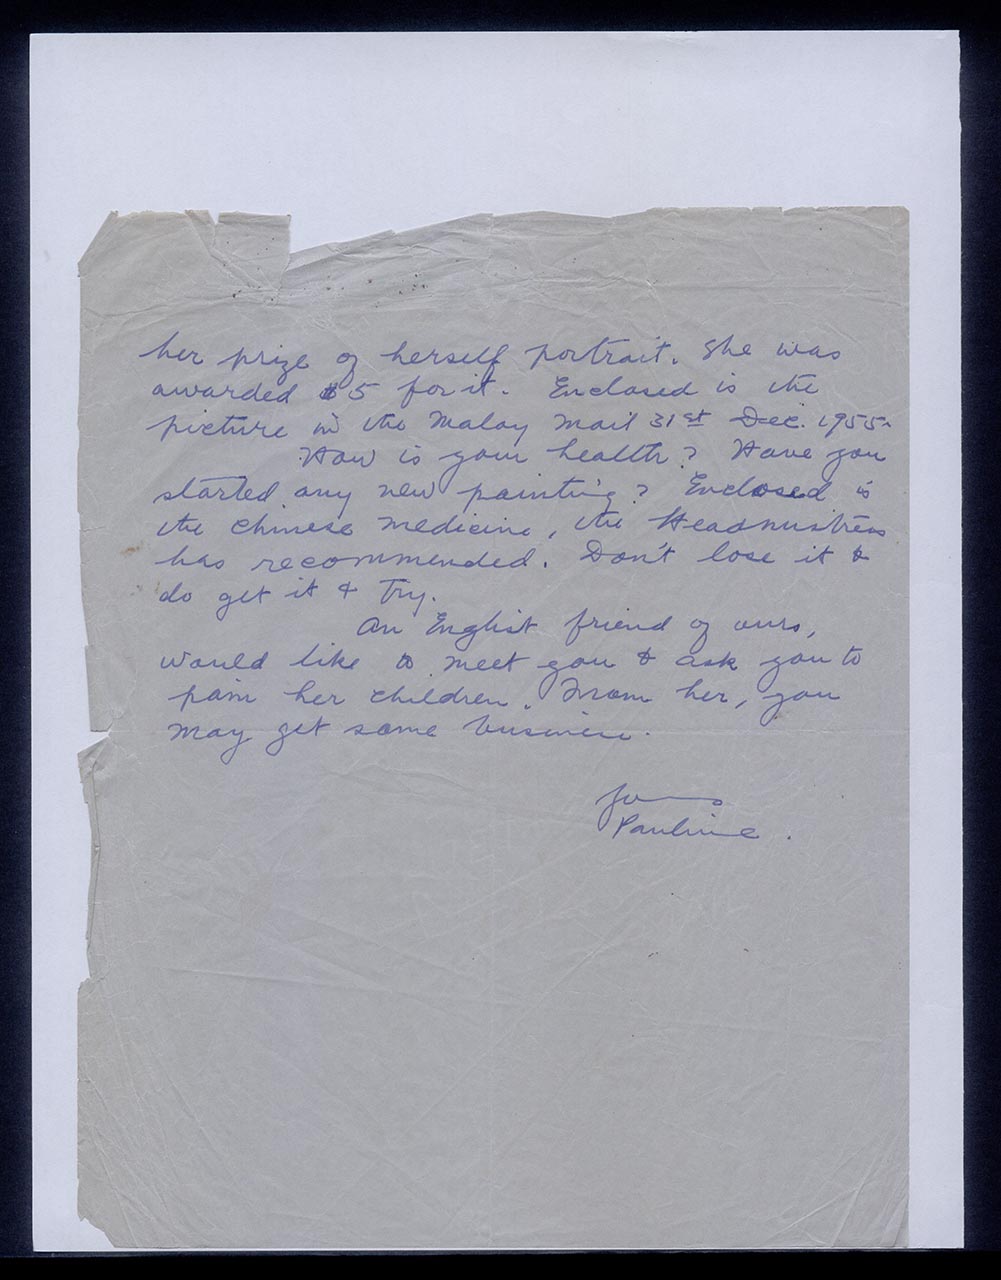 her prize of herself portrait. She was
awarded $5 for it. Enclosed is the
picture in the Malay Mail 31st Dec. 1955.
How is your health? Have you
started any new painting? Enclosed is
the Chinese medicine, the Headmistress
has recommended. Don't lose it &
do get it & try.
An English friend of ours,
would like to meet you & ask you to
pain her children. From her, you
may get some business.
Yours
Pauline.